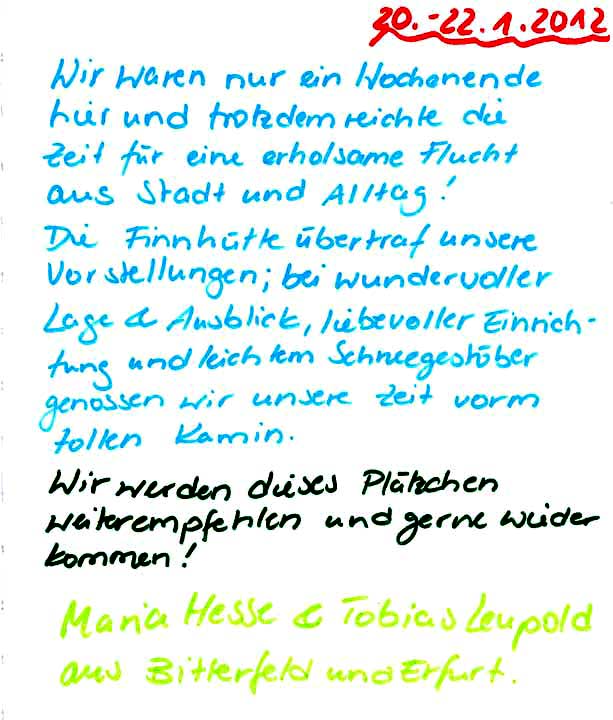 20.-22.1.2012
Wir waren nur ein Wochenende
hier und trotzdem reichte die
Zeit für eine erholsame Flucht
aus Stadt und Alltag!
Die Finnhütte übertraf unsere
Vorstellungen; bei wundervoller
Lage & Ausblick, liebevoller Einrich-
tung und leichtem Schneegestöber
genossen wir unsere Zeit vorm
tollen Kamin.
Wir werden dieses Plätzchen
weiterempfehlen und gerne wieder
kommen!
Maria Hesse & Tobias Leupold
aus Bitterfeld und Erfurt.